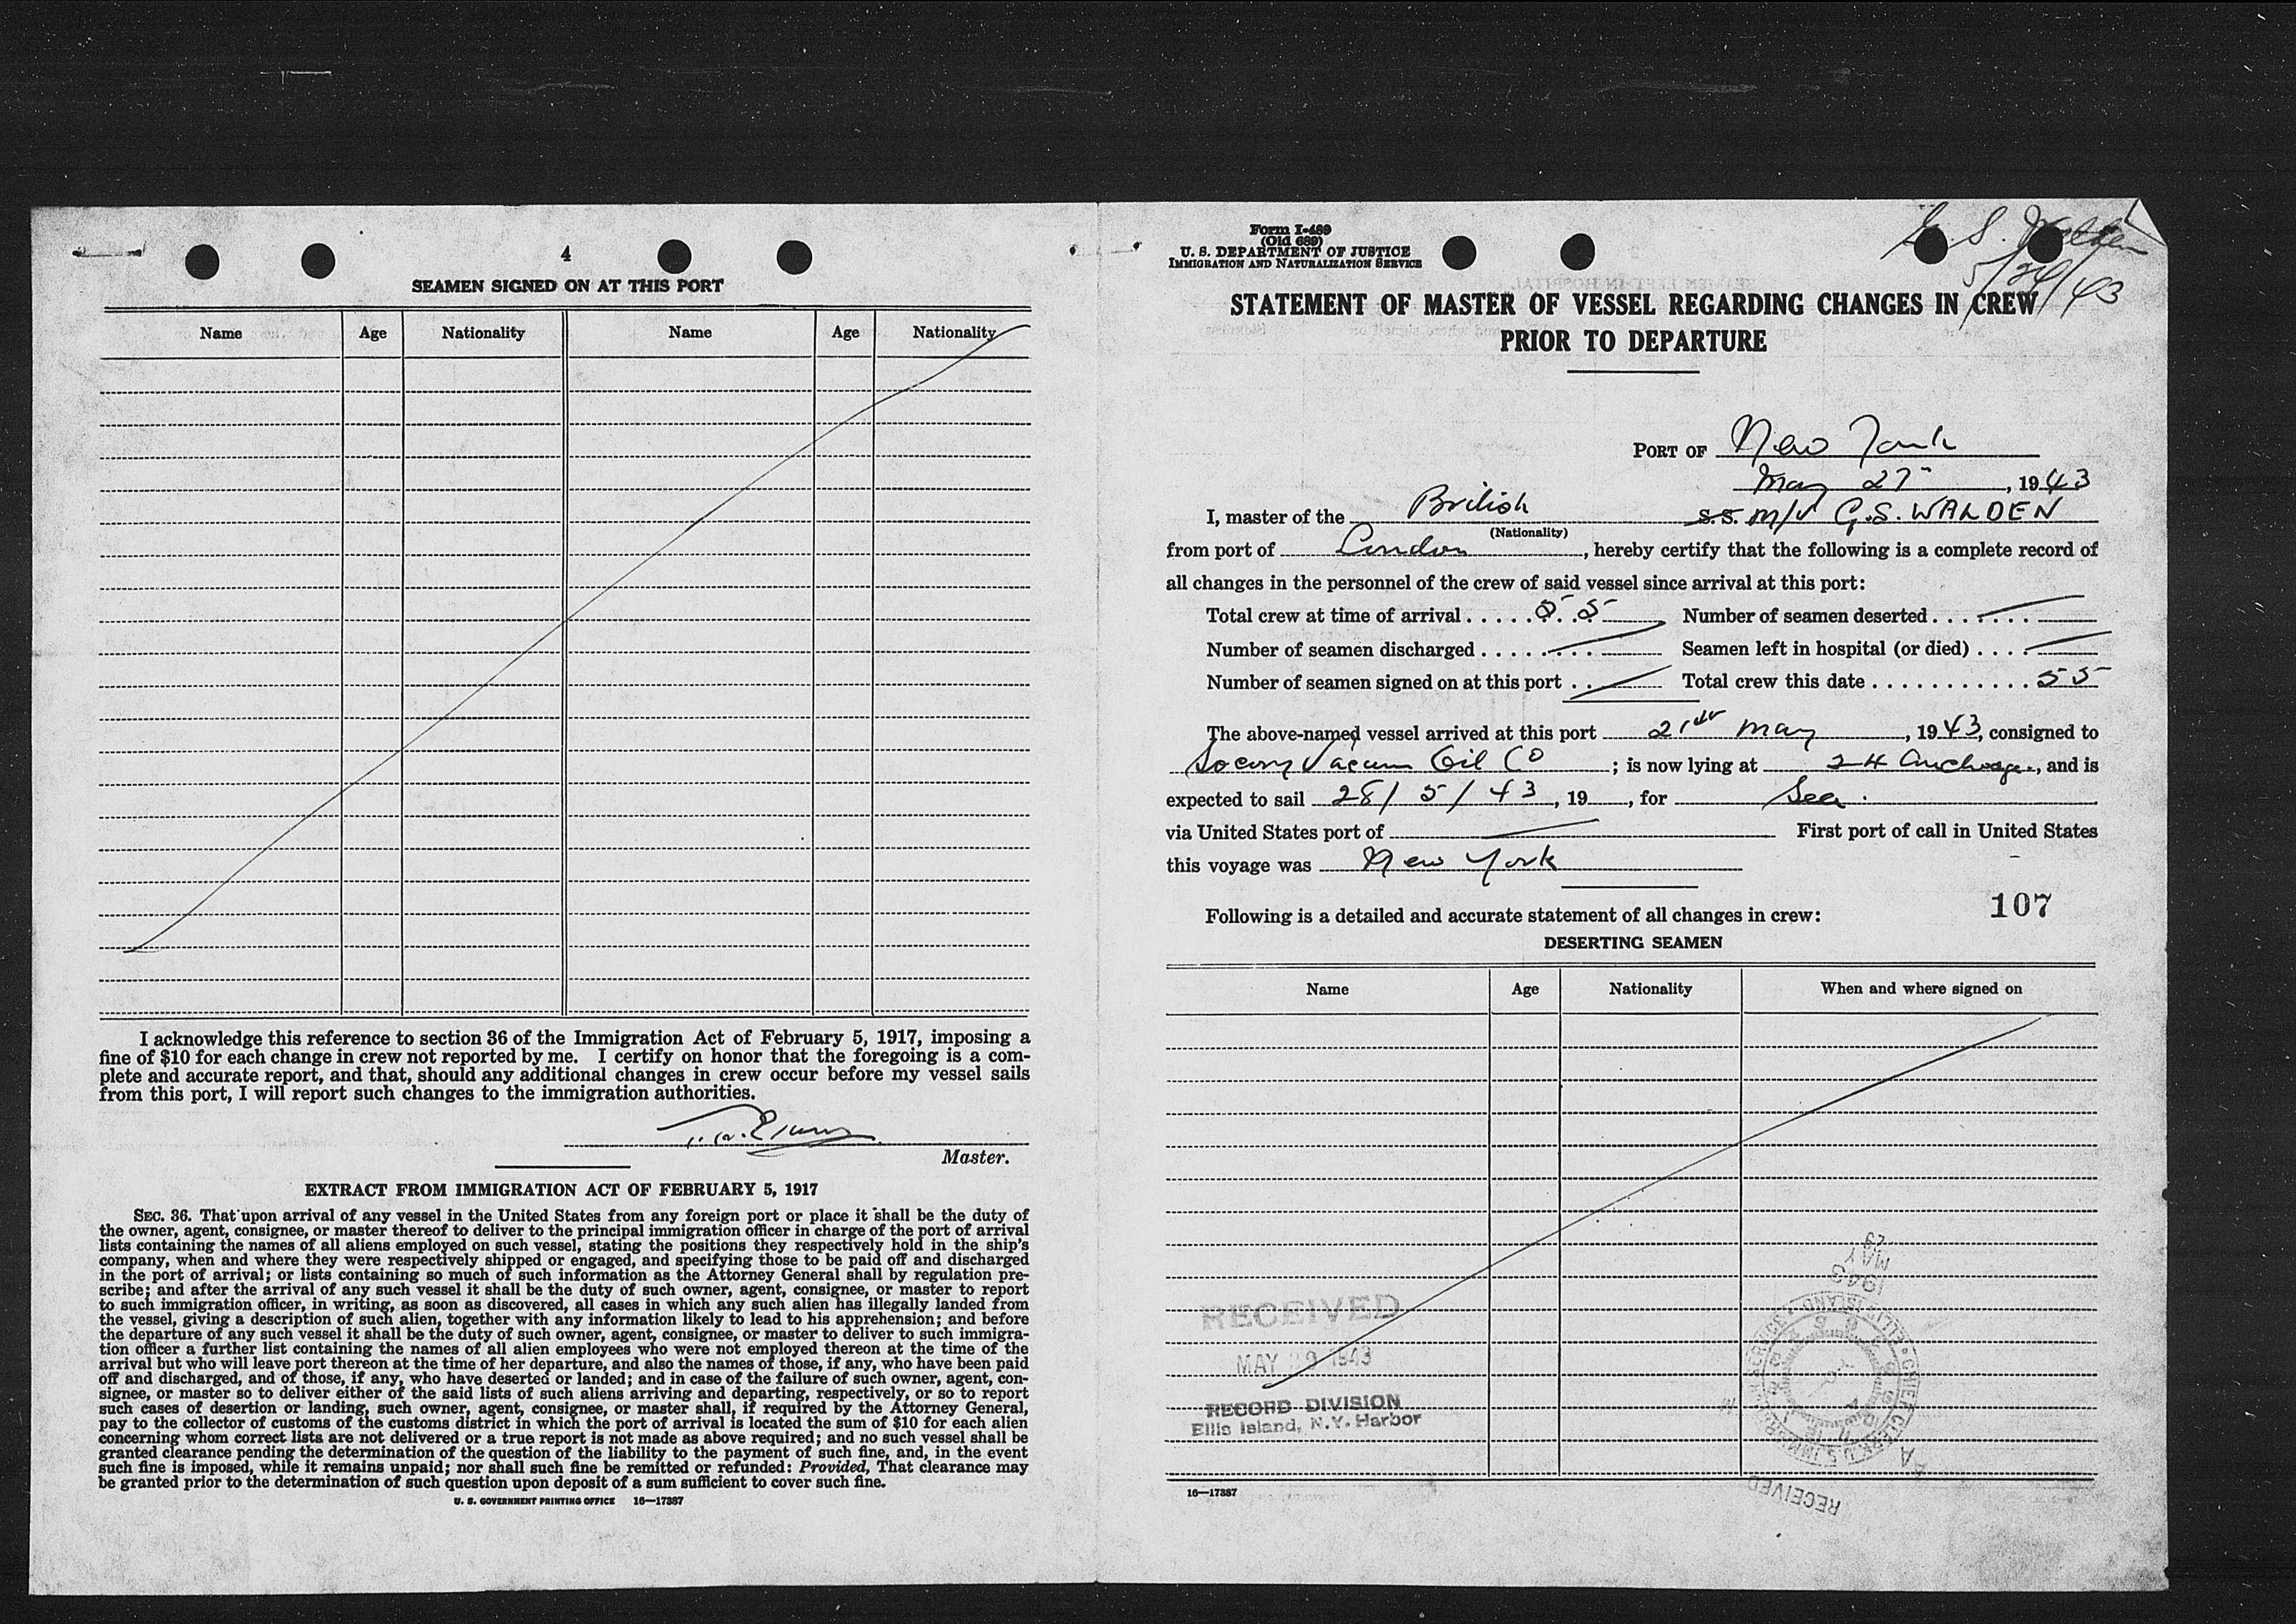 4
SEAMEN SIGNED ON AT THIS PORT
Name Age Nationality Name Age Nationality
I acknowledge this reference to section 36 of the Immigration Act of February 5, 1917, imposing a
fine of $10 for each change in crew not reported by me. I certify on honor that the foregoing is a com-
plete and accurate report, and that, should any additional changes in crew occur before my vessel sails
from this port, I will report such changes to the immigration authorities.
Master.
EXTRACT FROM IMMIGRATION ACT OF FEBRUARY 5, 1917
SEC. 36. That upon arrival of any vessel in the United States from any foreign port or place it shall be the duty of
the owner, agent, consignee, or master thereof to deliver to the principal immigration officer in charge of the port of arrival
lists containing the names of all aliens employed on such vessel, stating the positions they respectively hold in the ship's
company, when and where they were respectively shipped or engaged, and specifying those to be paid off and discharged
in the port of arrival; or lists containing so much of such information as the Attorney General shall by regulation pre-
scribe; and after the arrival of any such vessel it shall be the duty of such owner, agent, consignee, or master to report
to such immigration officer, in writing, as soon as discovered, all cases in which any such alien has illegally landed from
the vessel, giving a description of such alien, together with any information likely to lead to his apprehension; and before
the departure of any such vessel it shall be the duty of such owner, agent, consignee, or master to deliver to such immigra-
tion officer a further list containing the names of all alien employees who were not employed thereon at the time of the
arrival but who will leave port thereon at the time of her departure, and also the names of those, if any, who have been paid
off and discharged, and of those, if any, who have deserted or landed; and in case of the failure of such owner, agent, con-
signee, or master so to deliver either of the said lists of such aliens arriving and departing, respectively, or so to report
such cases of desertion or landing, such owner, agent, consignee, or master shall, if required by the Attorney General,
pay to the collector of customs of the customs district in which the port of arrival is located the sum of $10 for each alien
concerning whom correct lists are not delivered or a true report is not made as above required; and no such vessel shall be
granted clearance pending the determination of the question of the liability to the payment of such fine, and, in the event
such fine is imposed, while it remains unpaid; nor shall such fine be remitted or refunded: Provided, That clearance may
be granted prior to the determination of such question upon deposit of a sum sufficient to cover such fine.
U. S. GOVERNMENT PRINTING OFFICE 16—17387
Form I-489
(Old 689)
U. S. DEPARTMENT OF JUSTICE
IMMIGRATION AND NATURALIZATION SERVICE
G. S. Walden
5/24/43
STATEMENT OF MASTER OF VESSEL REGARDING CHANGES IN CREW
PRIOR TO DEPARTURE
PORT OF New York
May 27, 1943
I, master of the British S.S. M/V G.S. WALDEN
(Nationality)
from port of London, hereby certify that the following is a complete record of
all changes in the personnel of the crew of said vessel since arrival at this port:
Total crew at time of arrival 55 Number of seamen deserted
Number of seamen discharged Seamen left in hospital (or died)
Number of seamen signed on at this port Total crew this date 55
The above-named vessel arrived at this port 21st May, 1943, consigned to
Socony Vacum Oil Co; is now lying at 24 Anchorage, and is
expected to sail 28/5/43, 19, for Sea.
via United States port of First port of call in United States
this voyage was New York
107
Following is a detailed and accurate statement of all changes in crew:
DESERTING SEAMEN
Name Age Nationality When and where signed on
RECEIVED
MAY 1943
RECORD DIVISION
Ellis Island, N.Y. Harbor
1943
MAY
29
RECEIVED
16—17387